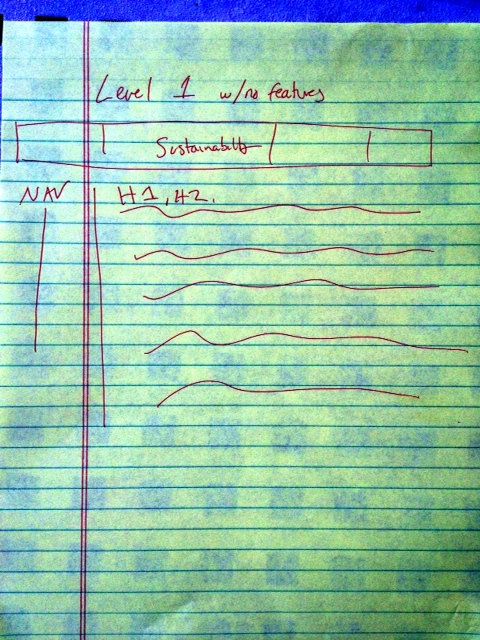 Level 1 w/no features
Sustainability
NAV
H1, H2.